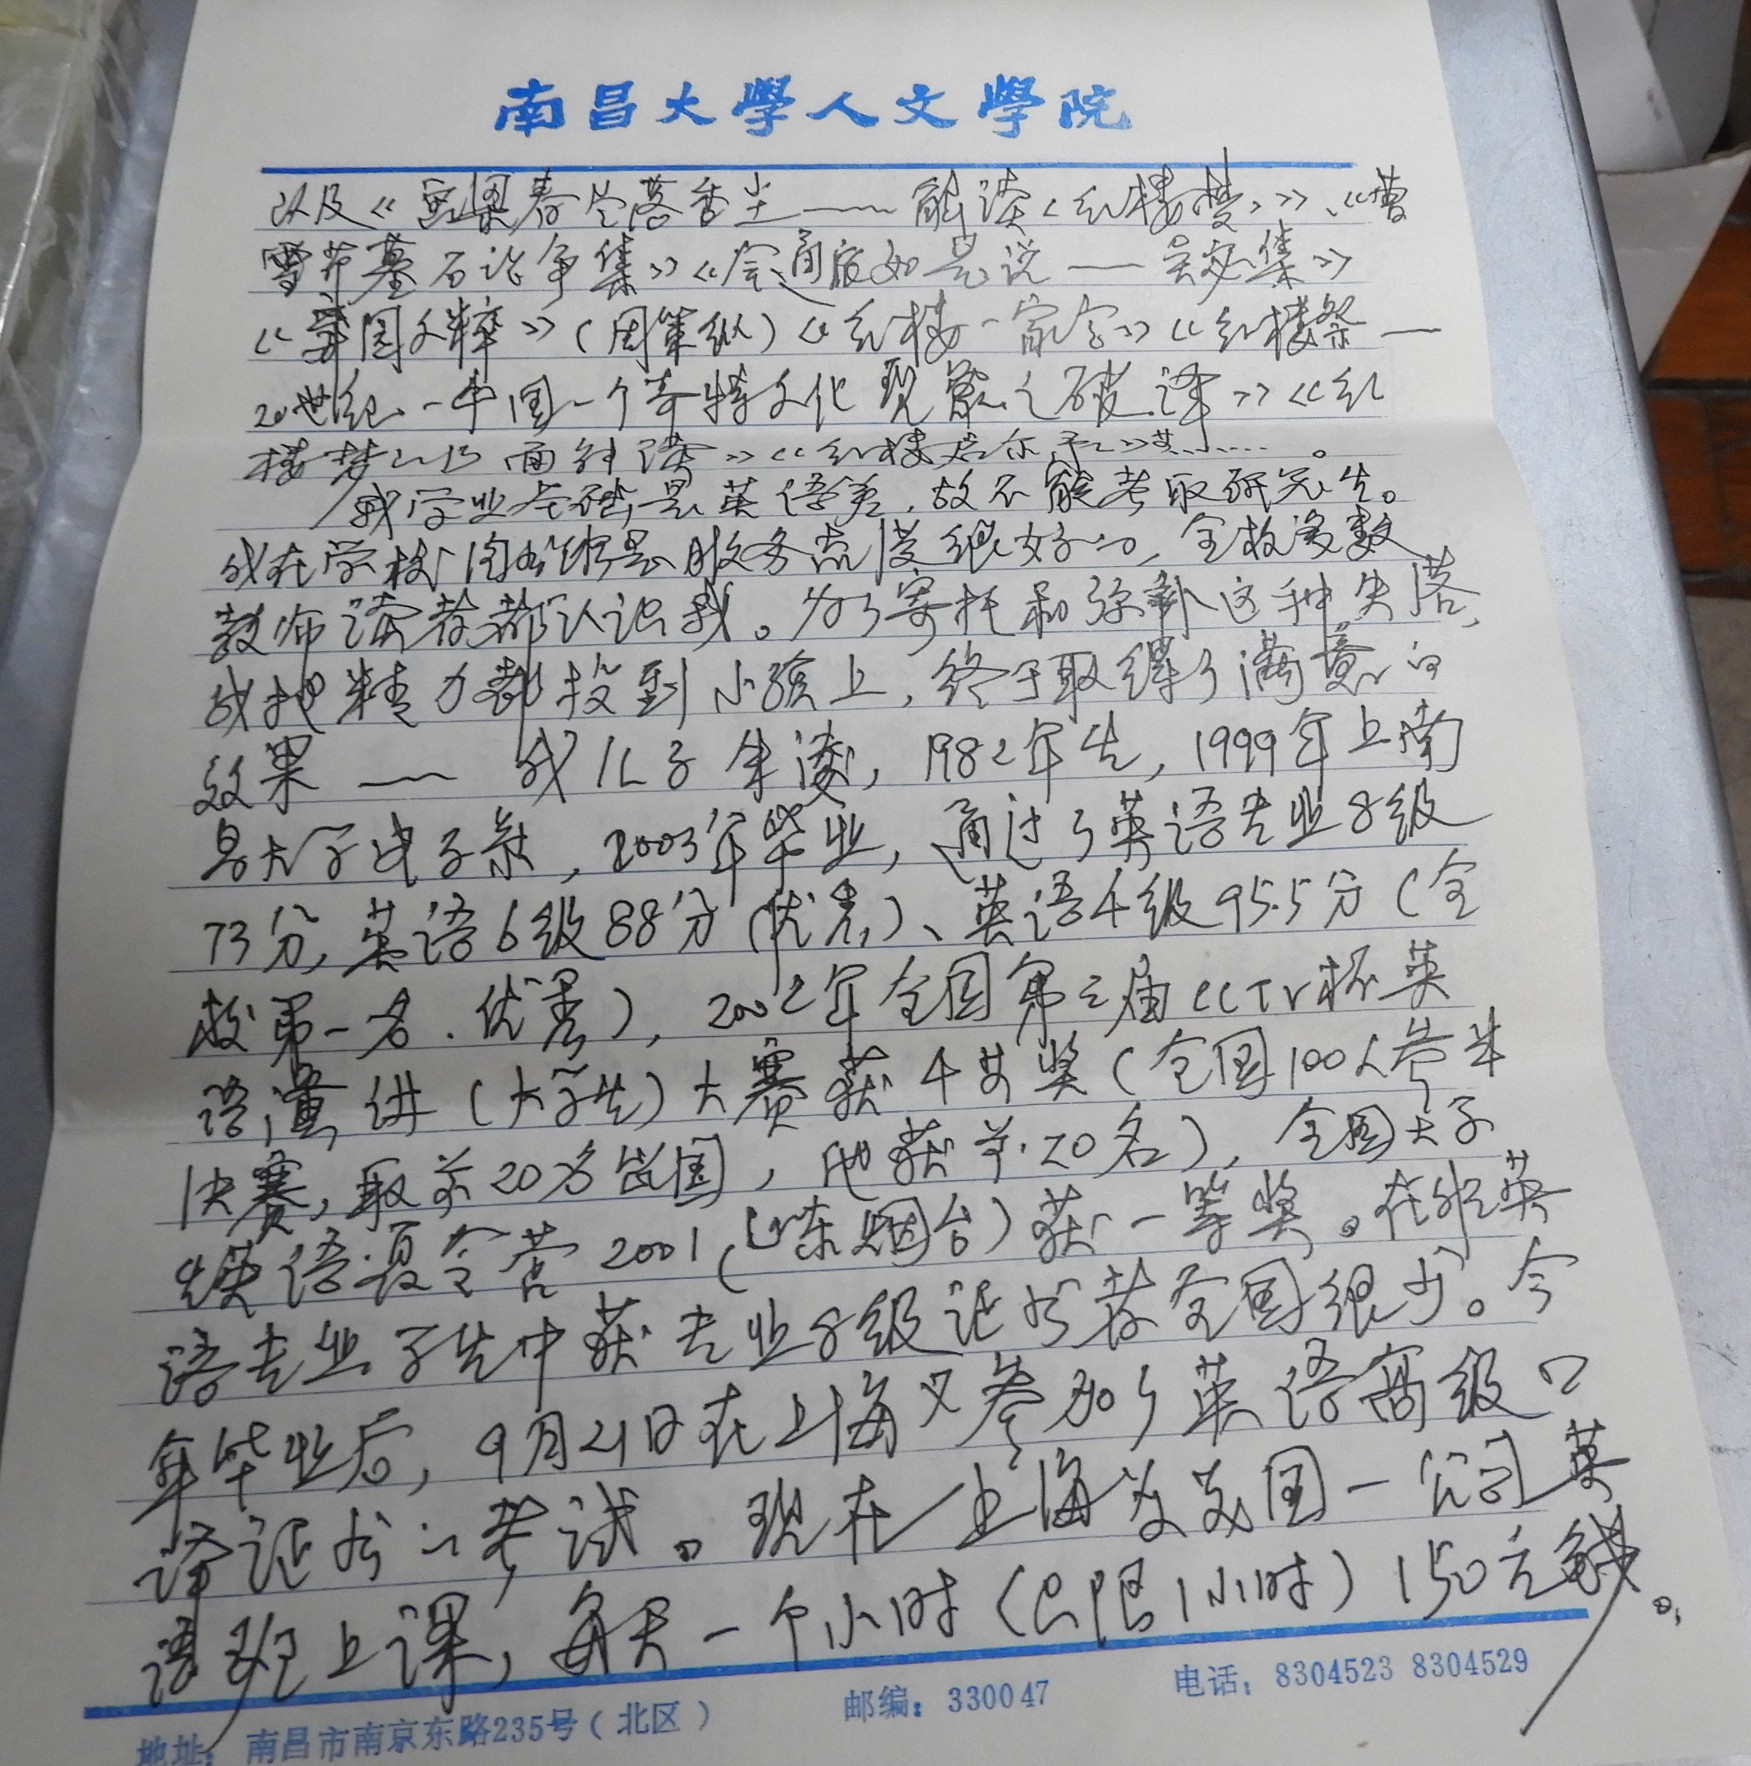 南昌大學人文學院
以及《画梁春尽落香尘——解读<红楼梦>》、《曹
雪芹墓石论争集》《会通派如是说——吴宓集》
《弃园文粹》(周策纵)《红楼一家言》《红楼祭—
20世纪一中国一个奇特文化现象之破译》《红
楼梦的面对读》《红楼启示录》共……。
我学业基础是英语差,故不能考取研究生。
我在学校图书馆是服务态度很好的,全校多数
教师读者都认识我。为了寄托和弥补这种失落,
我把精力都投到小孩上,终于取得了满意的
效果——我儿子余凌,1982年生,1999年上南
昌大学电子系,2003年毕业,通过了英语专业8级
73分,英语6级88分(优秀)、英语4级95.5分(全
校第一名.优秀),2002年全国第三届CCTV杯英
语演讲(大学生)大赛获4等奖(全国100人参半
决赛,取前20名出国,他获前20名),全国大学
生英语夏令营2001(山东烟台)获一等奖。在非英
语专业学生中获专业8级证书者全国很少。今
年毕业后,9月21日在上海又参加了英语高级口
译证书的考试。现在上海为美国一公司英
语班上课,每天一个小时(只限1小时)150元钱。
地址:南昌市南京东路235号(北区) 邮编:330047 电话:8304523 8304529